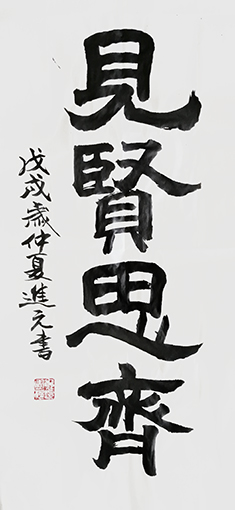 見賢思齊
戊戌歲仲夏進元書